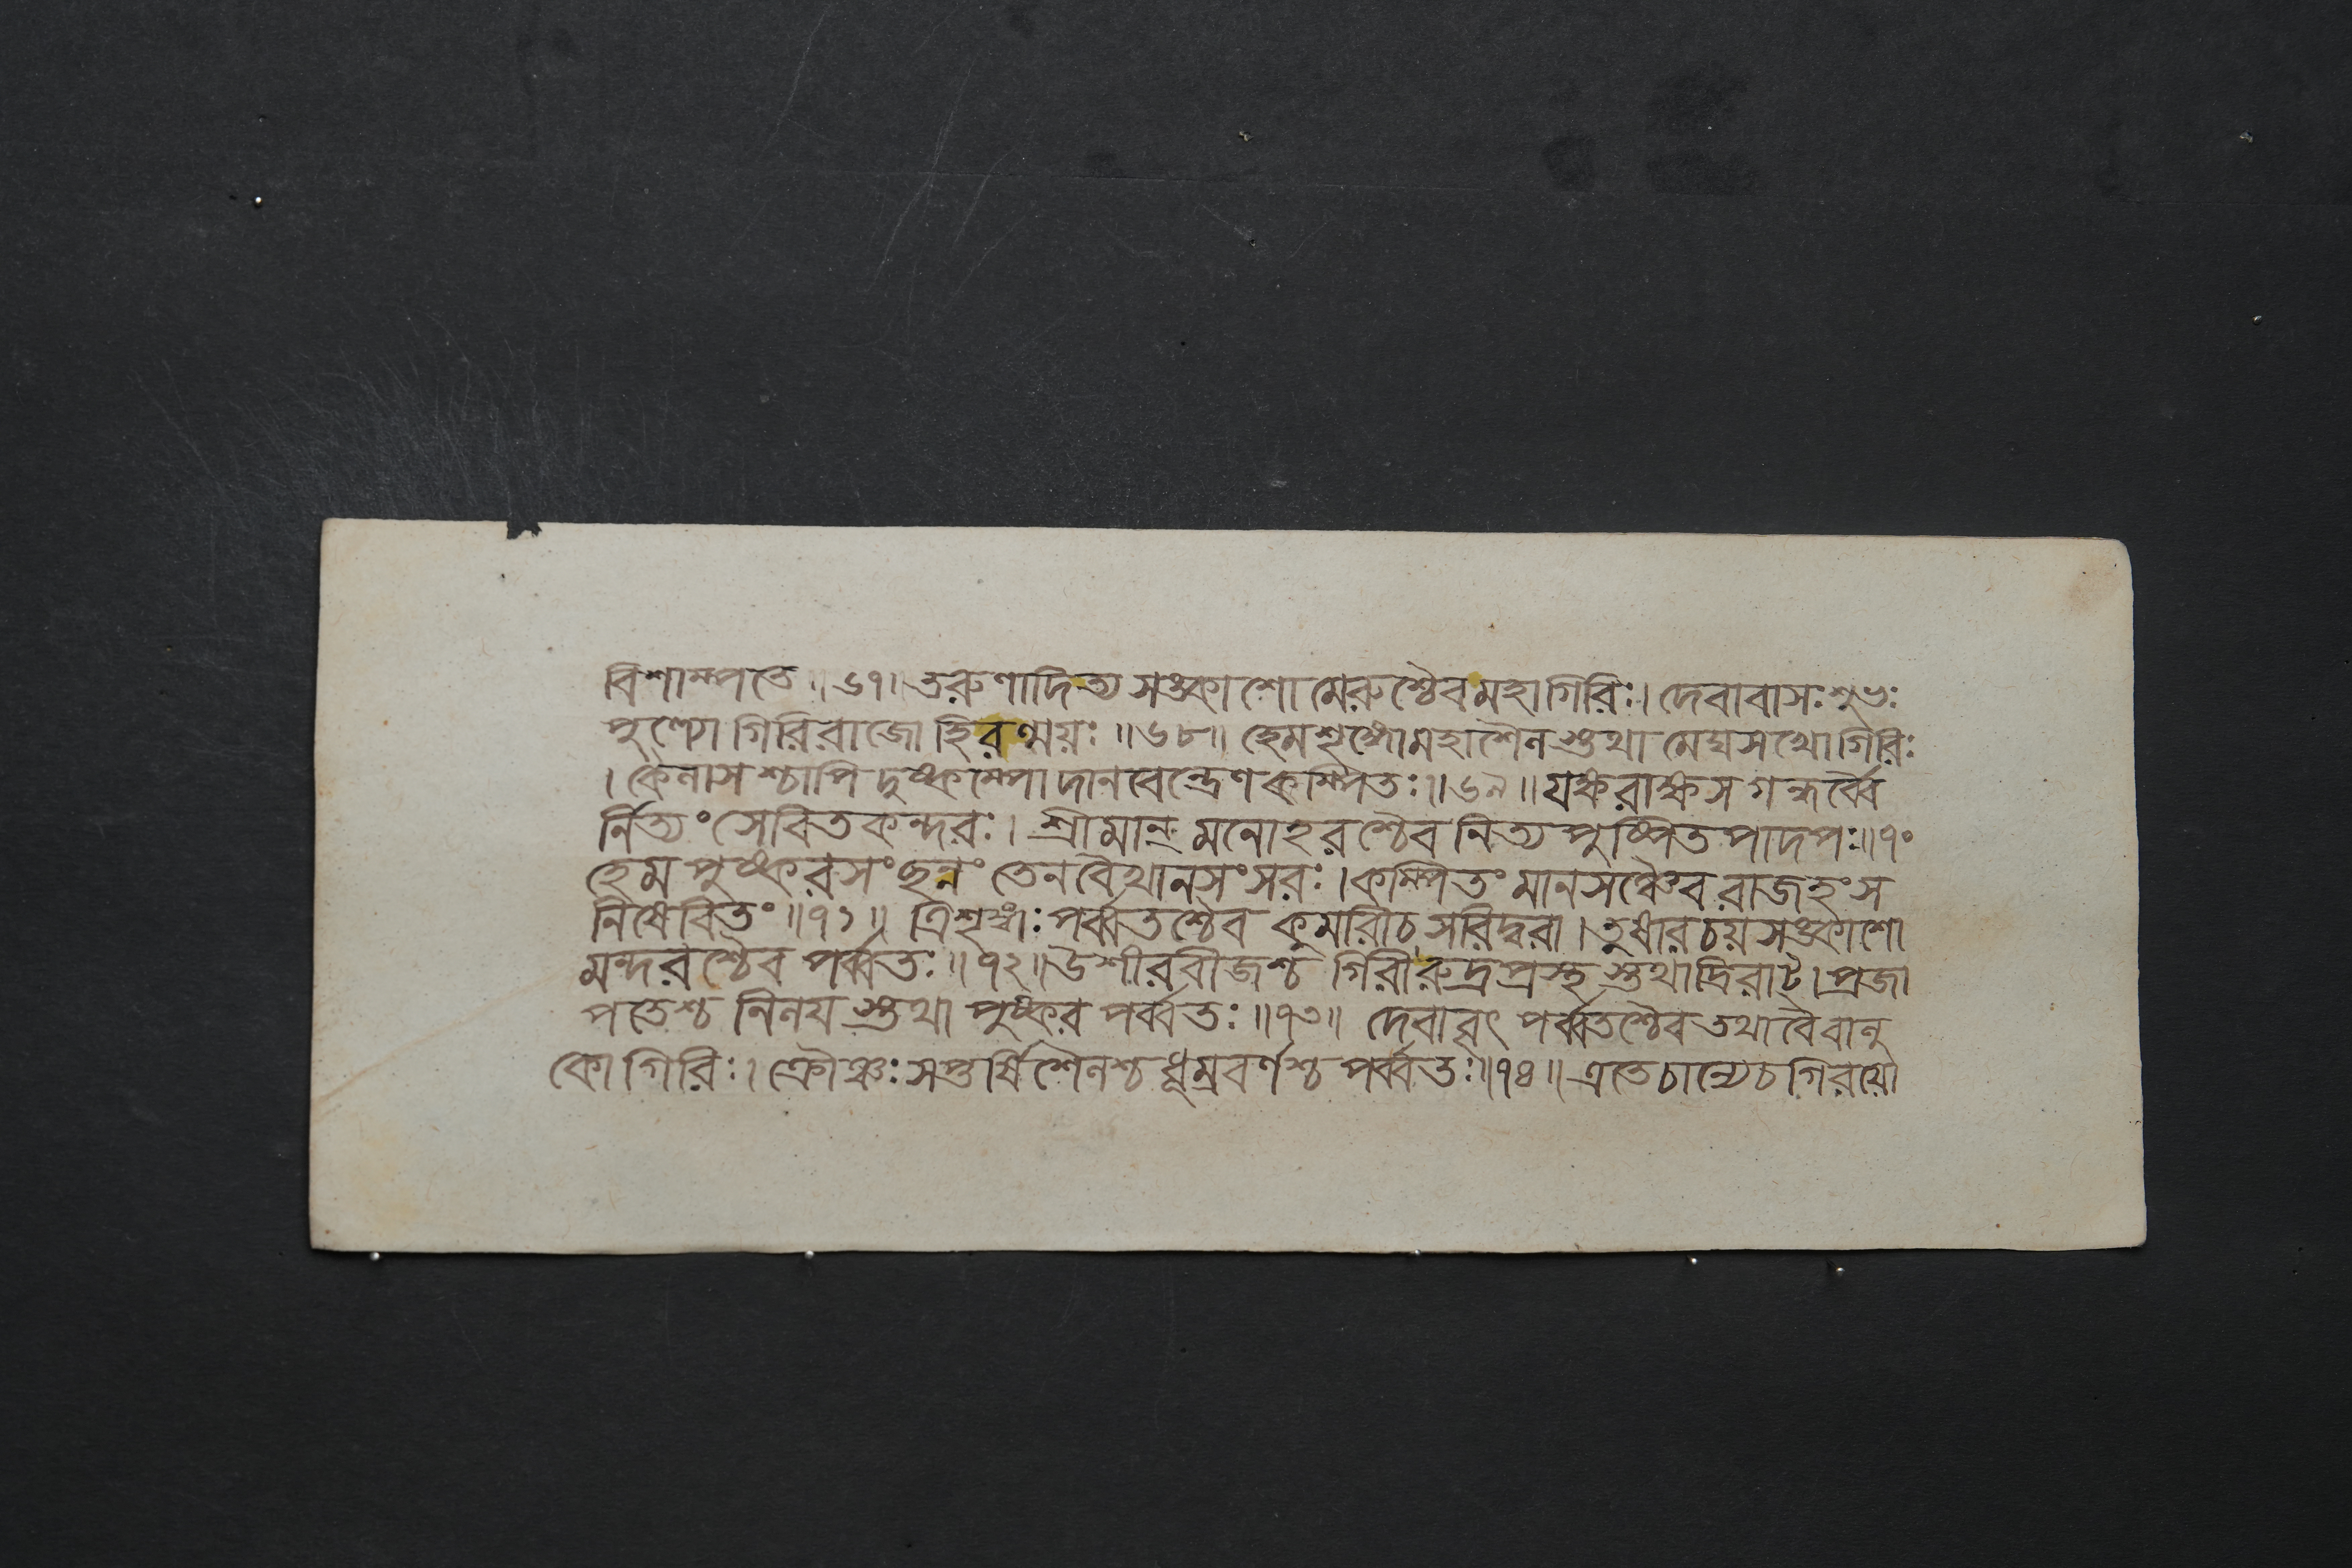 বিশাম্পতে ॥ ৬৭॥ তরুণাদিত্য সঙ্কাশো মেরুশ্চৈব মহাগিরিঃ। দেবাবাসঃ শুভঃ
পুণ্যো গিরিরাজো হিরণ্ময়ঃ ॥ ৬৮॥ হেমশৃঙ্গো মহাশৈলস্তথা মেঘসখো গিরিঃ
। কৈলাসশ্চাপি দুষ্কম্পো দানবেন্দ্রেণ কম্পিতঃ ॥ ৬৯ ॥ যক্ষরাক্ষস গন্ধর্ব্বৈ
র্নিত্যং সেবিতকন্দরঃ। শ্রীমান্ মনোহরশ্চৈব নিত্য পুষ্পিত পাদপঃ॥ ৭০
হেম পুষ্করসংছন্নং তেন বৈখানসংসরঃ। কম্পিতং মানসঞ্চৈব রাজহংস
নিষেবিতং ॥৭১॥ ত্রিশৃঙ্গঃ পর্ব্বতশ্চৈব কুমরীচ সরিদ্বরা। তুষারচয় সঙ্কাশো
মন্দরশ্চৈব পর্ব্বতঃ ॥ ৭২॥ উশীরবীজশ্চ গিরীরুদ্রপ্রস্থ স্তথাদ্রিরাট্। প্রজা
পতেশ্চ নিলয় স্তথা পুষ্কর পর্ব্বতঃ ॥৭৩॥ দেবাবৃৎ পর্ব্বতশ্চৈব তথাবৈবালু
কো গিরিঃ। ক্রৌঞ্চঃ সপ্তর্ষিশৈলশ্চ ধূম্রবর্ণশ্চ পর্ব্বতঃ॥৭৪॥ এতে চান্যেচ গিরয়ো